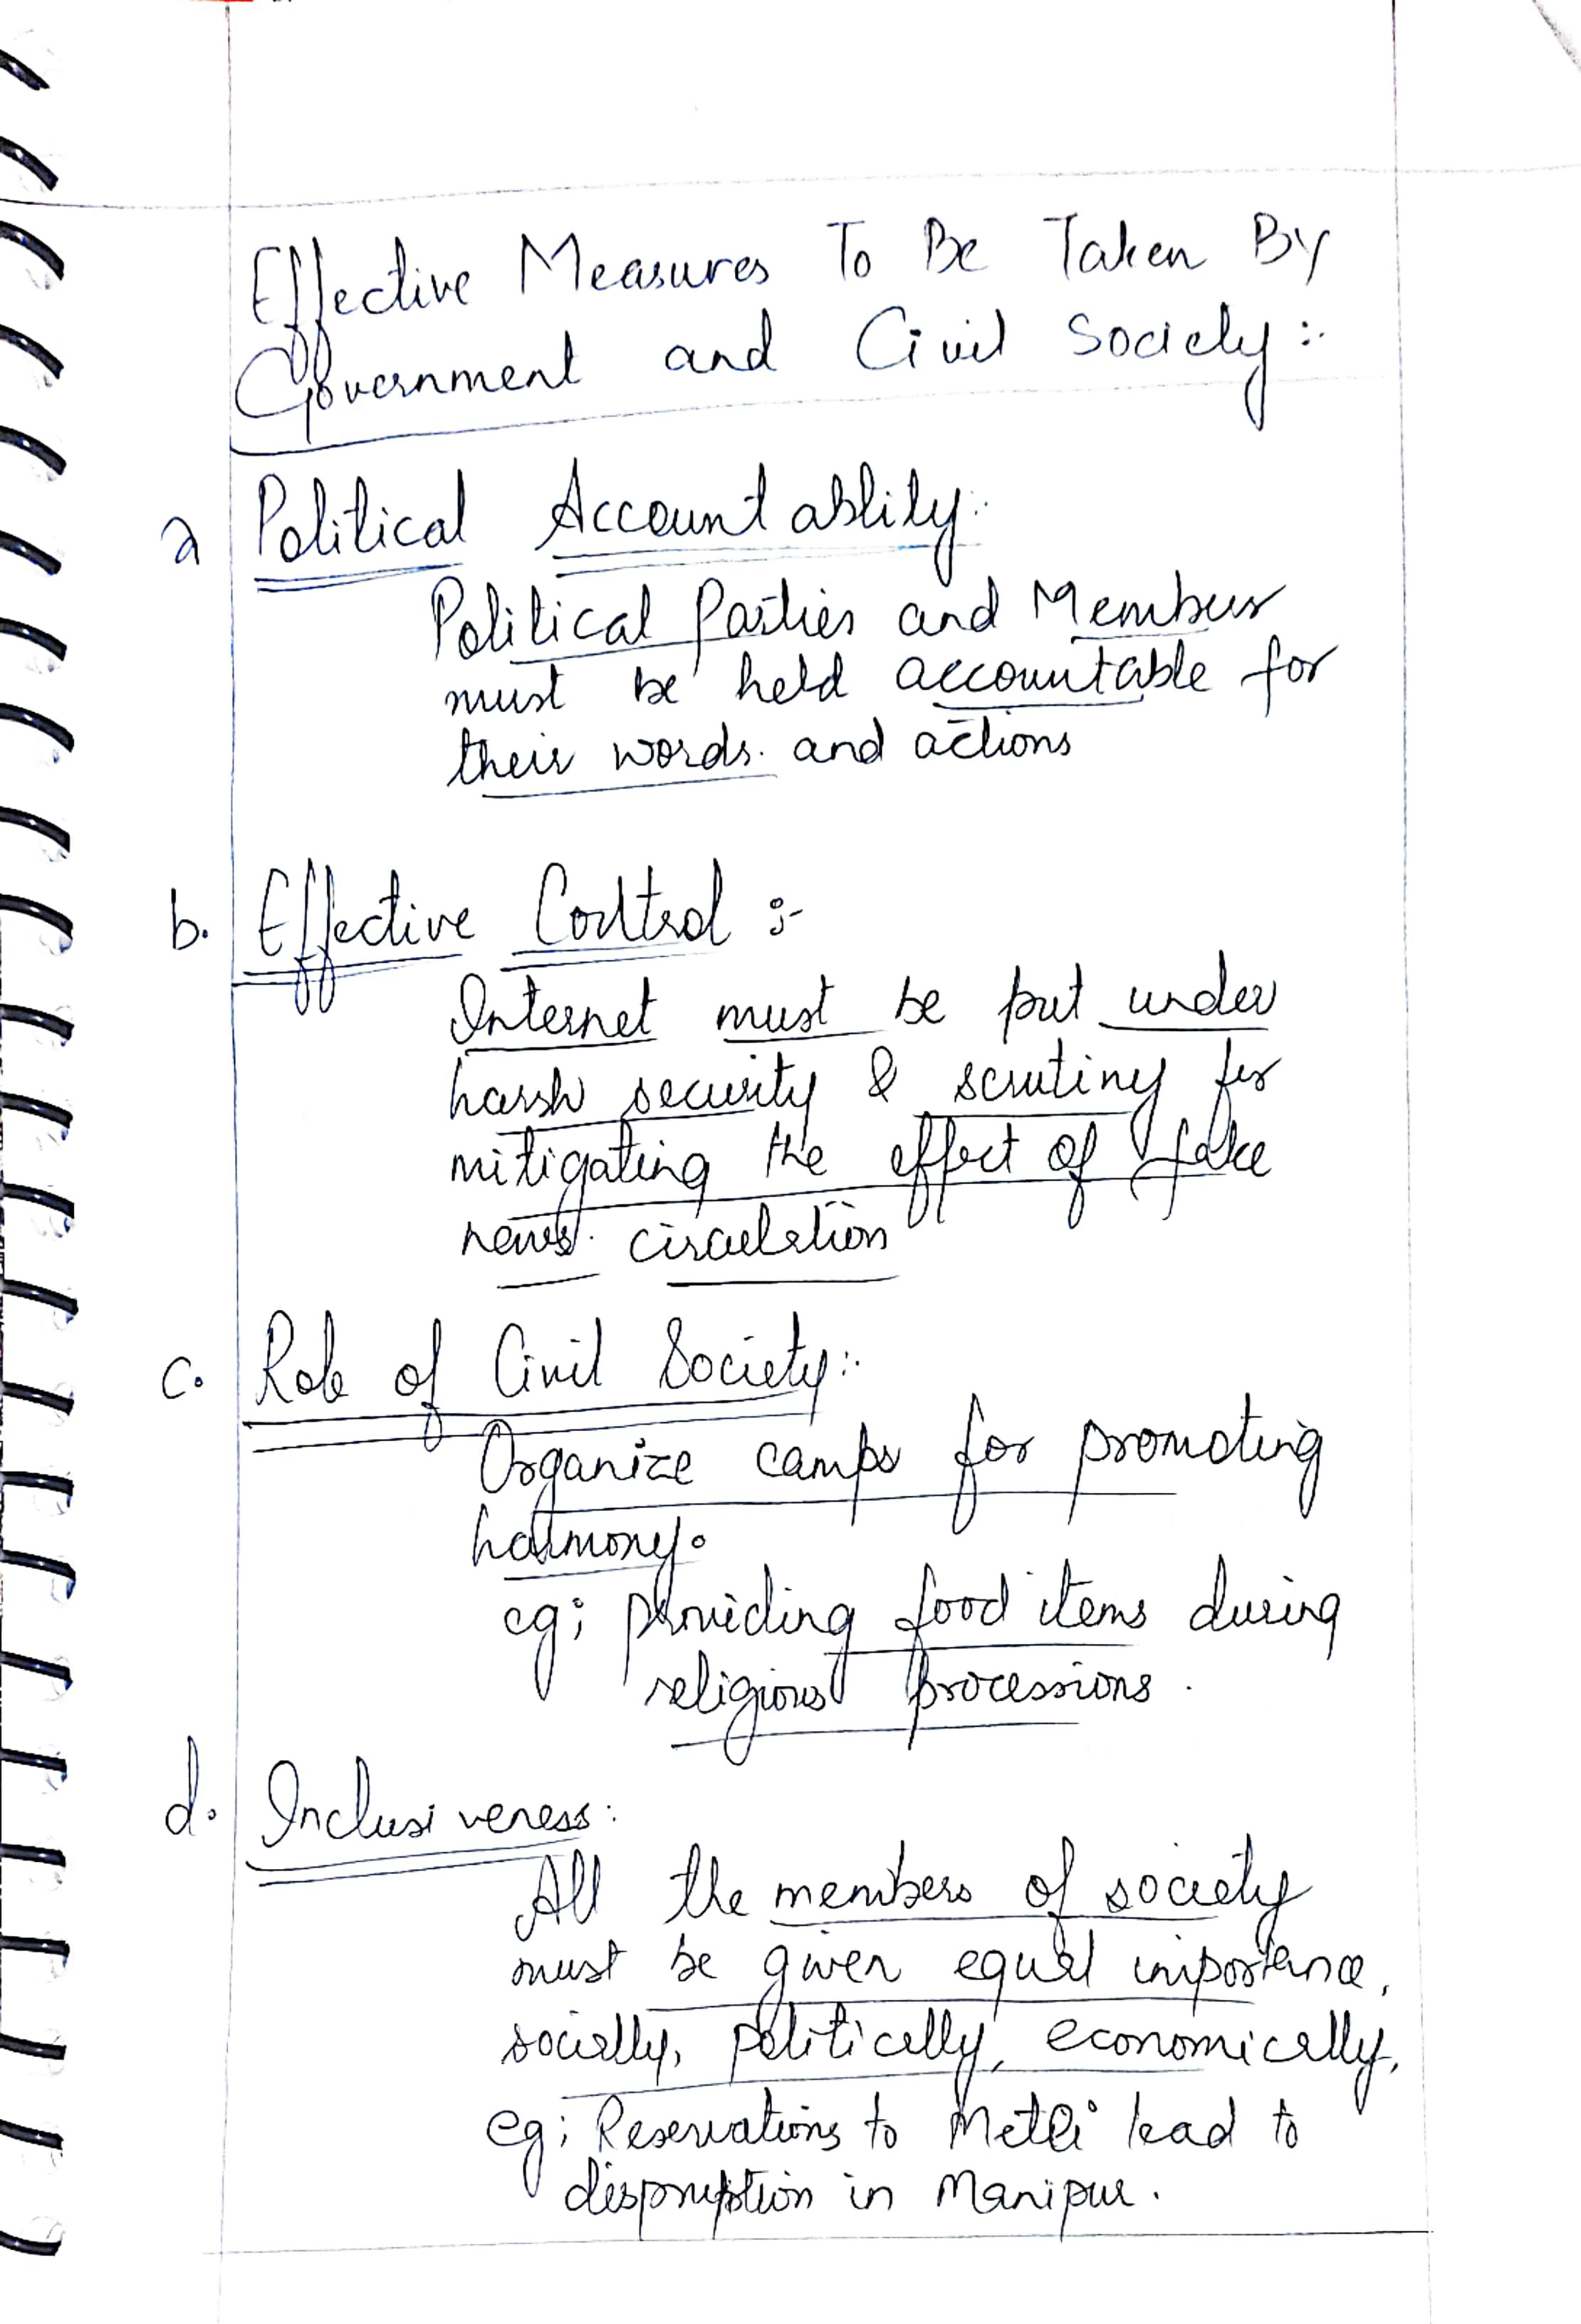 Effective Measures To Be Taken By
Government and Civil Society:-
a Political Accountablity:-
Political Parties and Members
must be held accountable for
their words. and actions
b. Effective Control :-
Internet must be put under
harsh security & scrutiny for
mitigating the effect of fake
news. circulation
c. Role of Civil Society:-
Organize camps for promoting
harmony.
eg; providing food items during
religious processions.
d. Inclusiveness:
All the members of society
must be given equal importance,
socially, politically, economically,
eg; Reservations to Metei lead to
in Manipur.